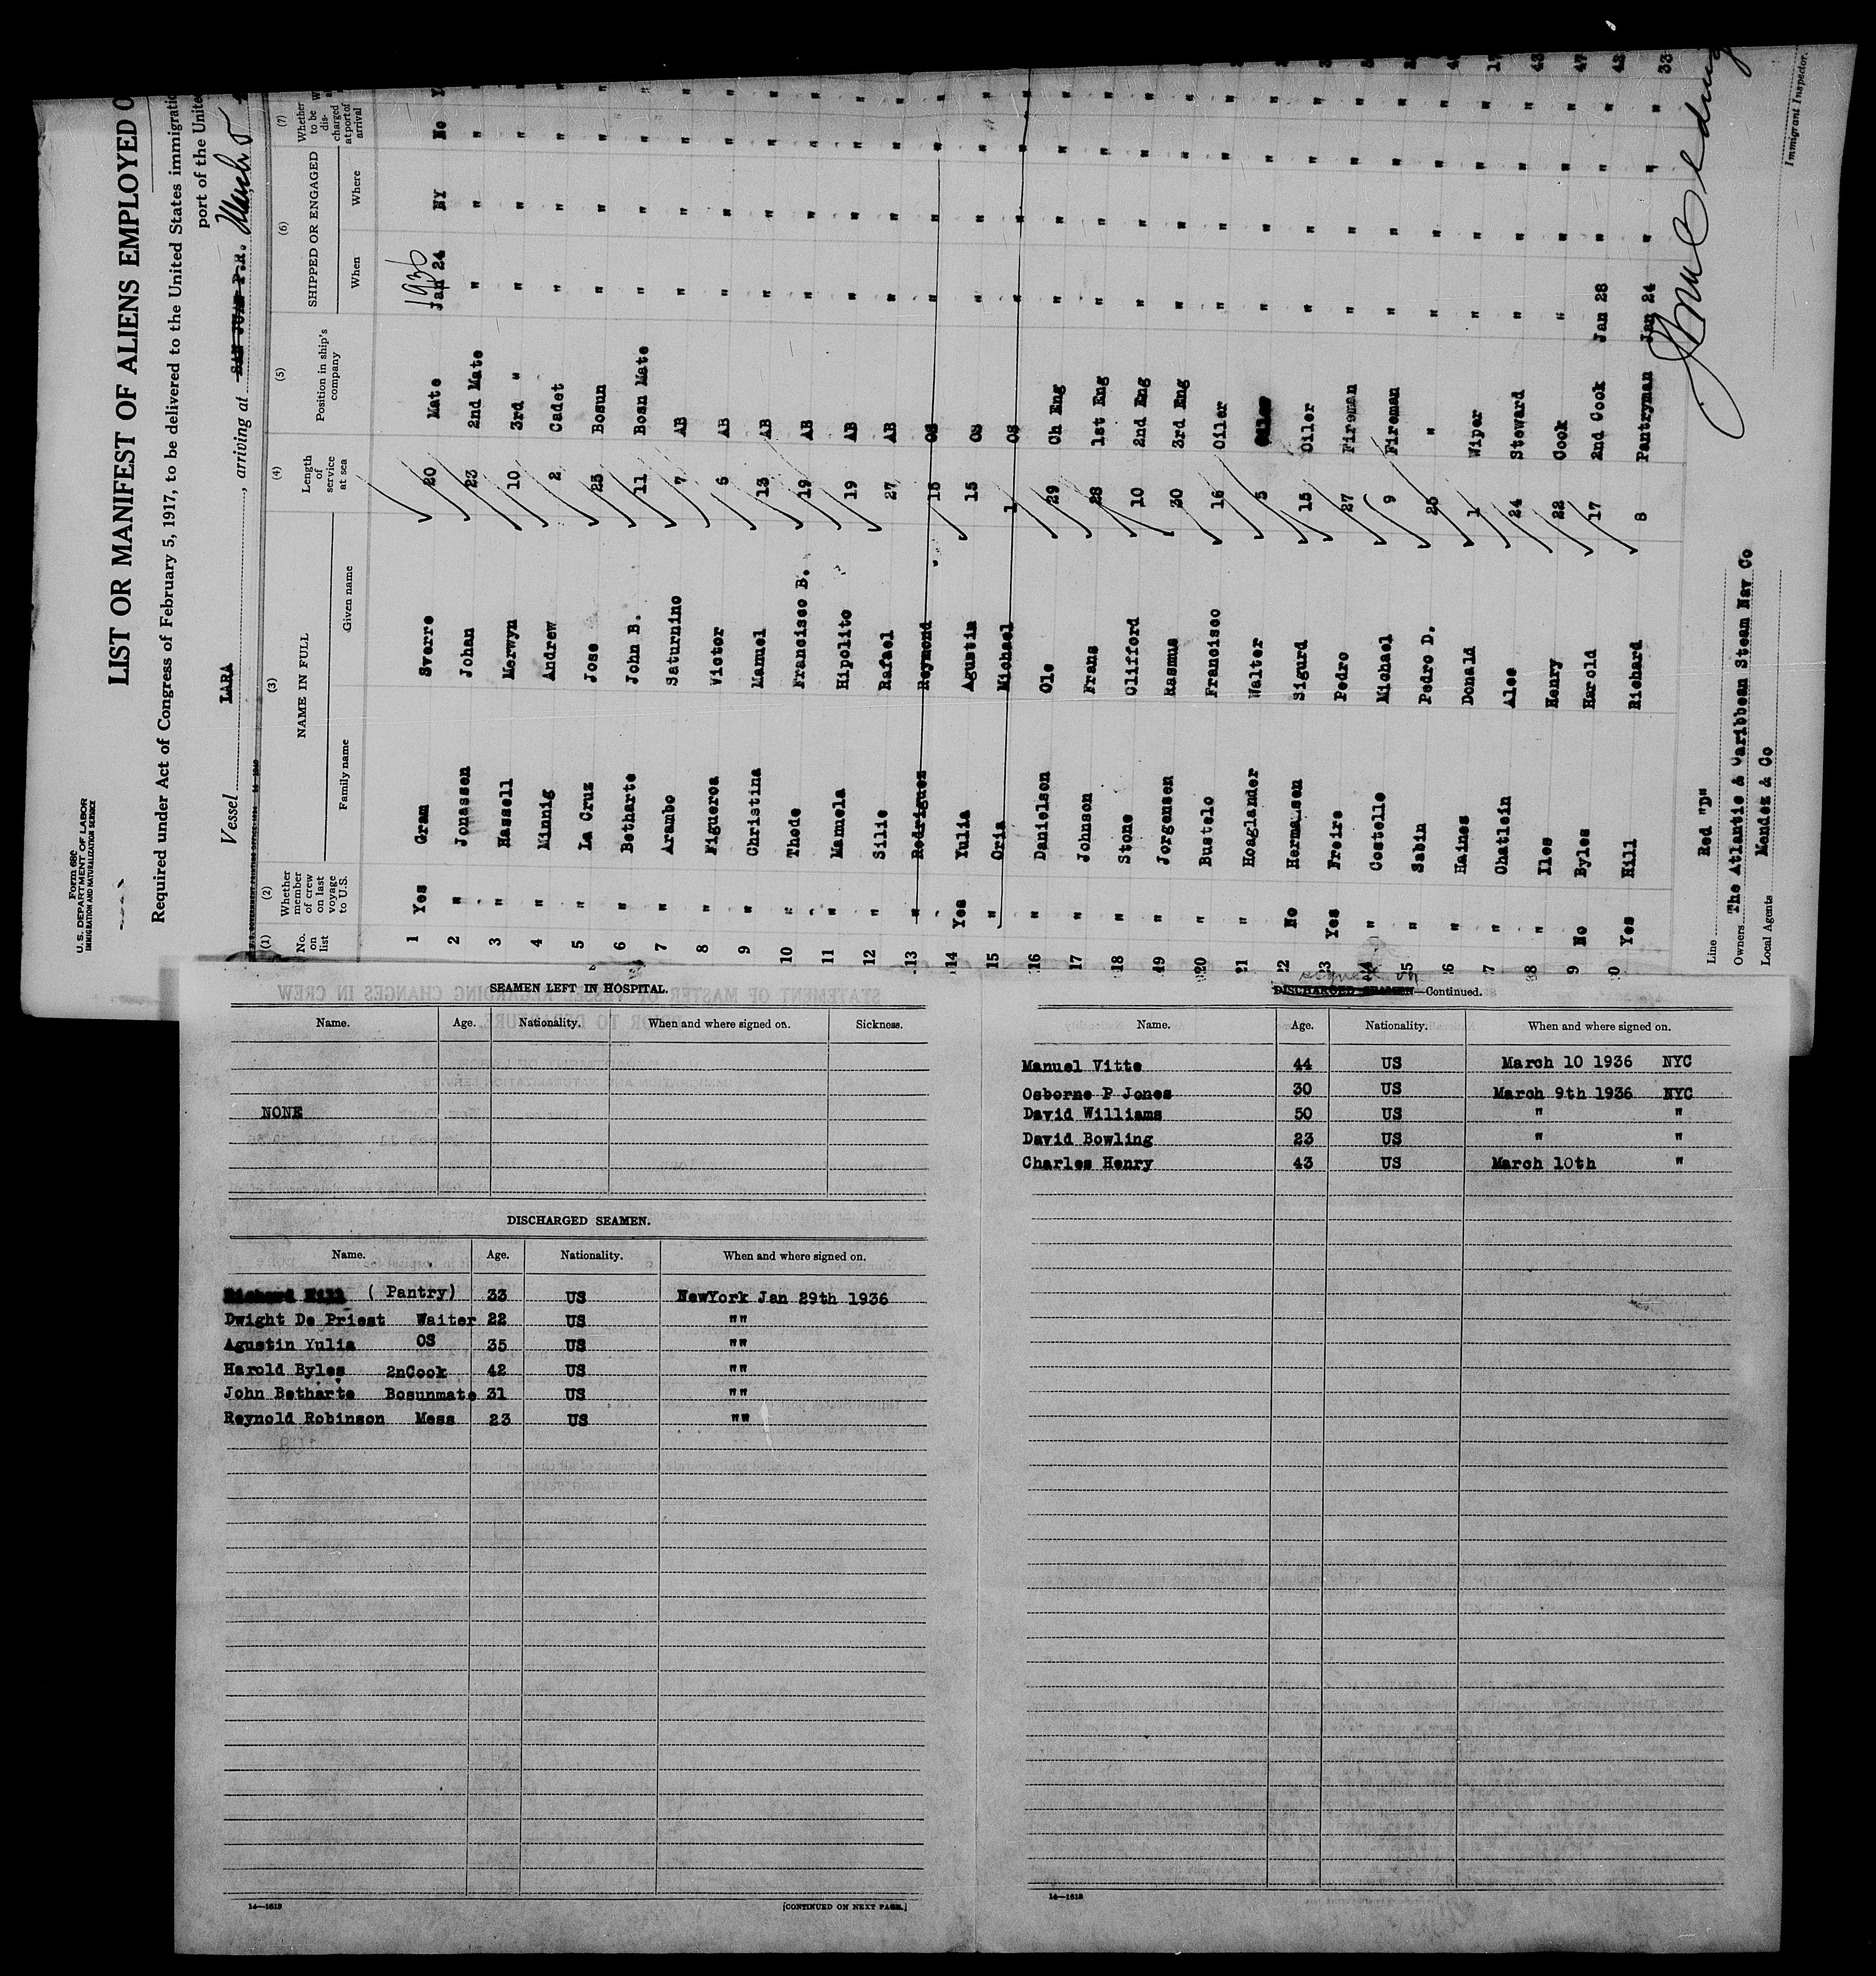 Form 680
U.S. DEPARTMENT OF LABOR
IMMIGRATION AND NATURALIZATION SERVICE
LIST OR MANIFEST OF ALIENS EMPLOYED O
Required under Act of Congress of February 5, 1917, to be delivered to the United States immigratio
port of the Unite
Vessel LARA, arriving at SAN JUAN P.R. March 5
(1) (2) (3) (4) (5) (6) (7)
No. on list Whether member of crew on last voyage to U.S. NAME IN FULL Length of service at sea Position in ship's company SHIPPED OR ENGAGED Whether to be discharged at port of arrival
Family name Given name When Where
1936
1 Yes Gram Sverre 20 Mate Jan 24 NY No Y
2 " Jonassen Johan 23 2nd Mate " " " "
3 " Hassell Merwyn 10 3rd " " " " "
4 " Minnig Andrew 2 Cadet " " " "
5 " La Cruz Jose 25 Bosun " " " "
6 " Betharte John B. 11 Bosn Mate " " " "
7 " Arambo Saturnino 7 AB " " " "
8 " Figueroa Victor 6 AB " " " "
9 " Christina Manuel 13 AB " " " "
10 " Thode Francisco B. 19 AB " " " "
11 " Mamuela Hipolito 19 AB " " " "
12 " Silie Rafael 27 AB " " " "
13 " Rodriguez Reymond 15 OS " " " "
14 Yes Yulia Agustin 15 OS " " " "
15 " Oria Michael 1 OS " " " "
16 " Danielson Ole 29 Ch Eng " " " "
17 " Johnson Frans 28 1st Eng " " " "
18 " Stone Clifford 10 2nd Eng " " " "
19 " Jorgensen Rasmus 30 3rd Eng " " " "
20 " Bustelo Francisco 16 Oiler " " " "
21 " Hoaglander Walter 5 Oiler " " " "
22 No Hermansen Sigurd 15 Oiler " " " "
23 Yes Freire Pedro 27 Fireman " " " "
24 " Costelle Michael 9 Fireman " " " "
5 " Sabin Pedro D. 25 " " " " "
6 " Haines Donald 1 Wiper " " " "
7 " Chatlein Alec 24 Steward " " " "
8 " Iles Henry 22 Cook " " " "
9 No Byles Harold 17 2nd Cook Jan 28 " " "
0 Yes Hill Richard 8 Pantryman Jan 24 " " " 33
Line Red "D"
Owners The Atlantic & Caribbean Steam Nav Co
Local Agents Mendez & Co
Immigrant Inspector.
SEAMEN LEFT IN HOSPITAL.
Name. Age. Nationality. When and where signed on. Sickness.
NONE
DISCHARGED SEAMEN.
Name. Age. Nationality. When and where signed on.
Richard Hill (Pantry) 33 US NewYork Jan 29th 1936
Dwight De Priest Waiter 22 US ""
Agustin Yulia OS 35 US ""
Harold Byles 2nCook 42 US ""
John Betharte Bosunmate 31 US ""
Reynold Robinson Mess 23 US ""
14—1613
[CONTINUED ON NEXT PAGE.]
DISCHARGED SEAMEN—Continued.
Name. Age. Nationality. When and where signed on.
Manuel Vitte 44 US March 10 1936 NYC
Osborne P Jones 30 US March 9th 1936 NYC
David Williams 50 US " "
David Bowling 23 US " "
Charles Henry 43 US March 10th "
14—1613